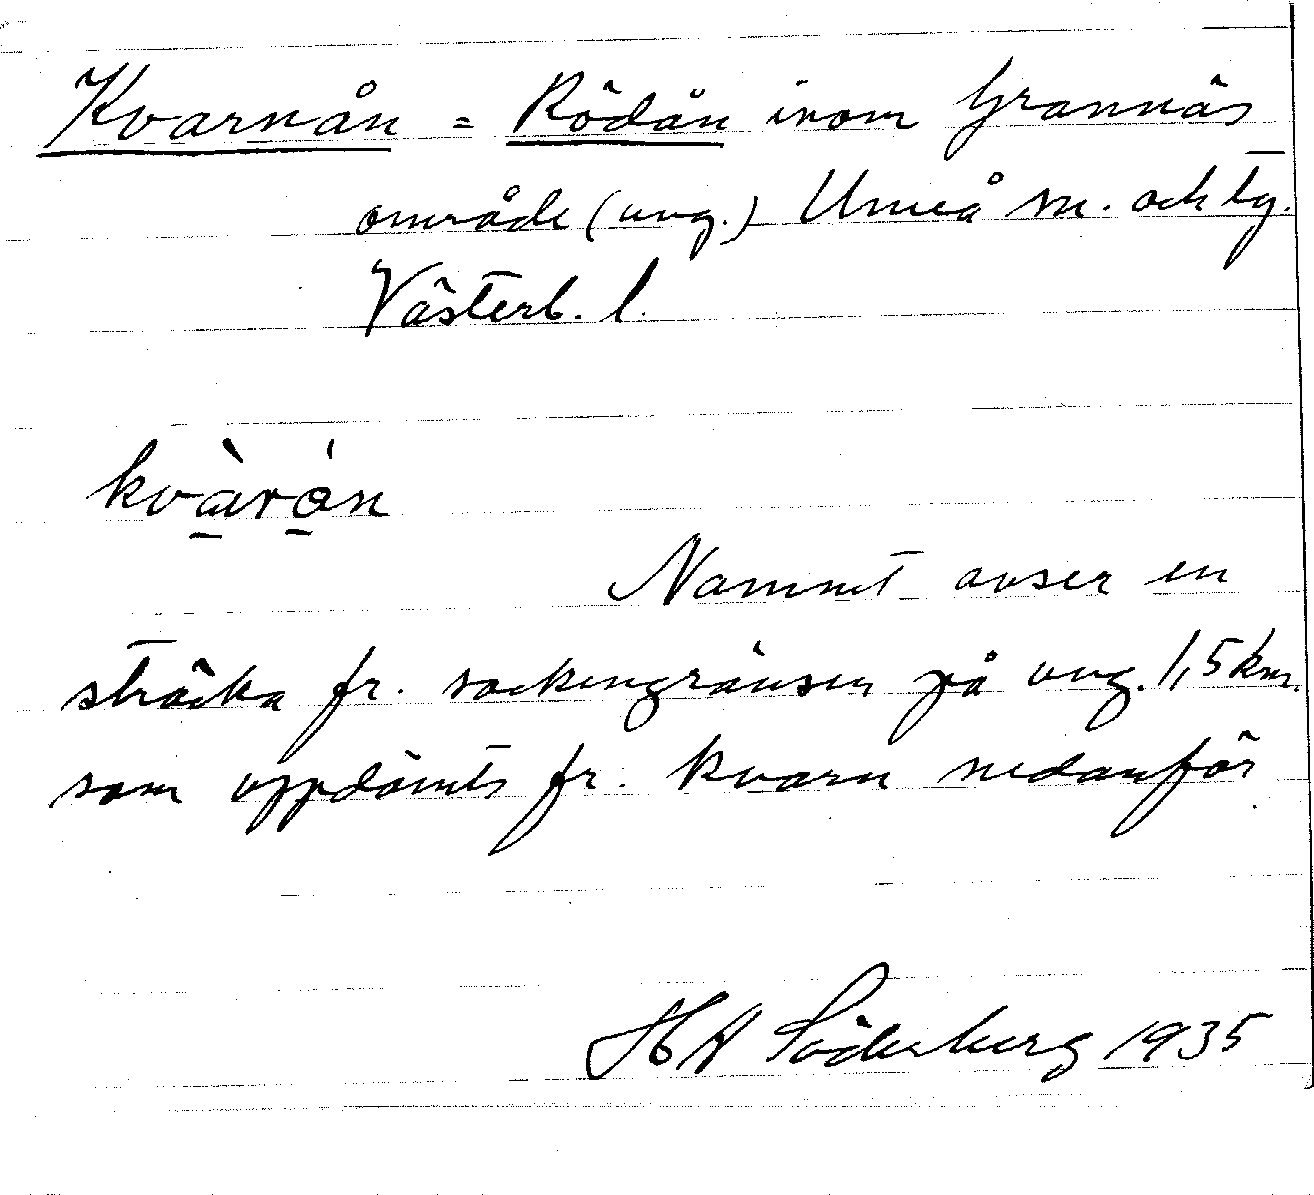 Kvarnån = Rödån inom Grannäs
område (ung.) Umeå sn. och tg.
Västerb. l.
kvàrån
Namnet avser en
sträcka fr. sockengränsen på ung. 1,5 km.
som uppdämts fr. kvarn nedanför
H A Söderberg 1935